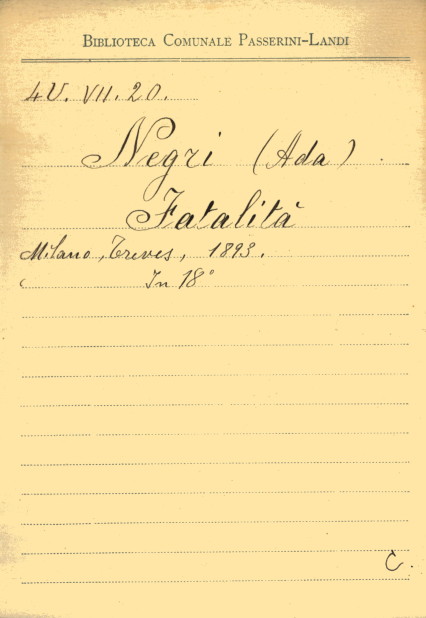 BIBLIOTECA COMUNALE PASSERINI-LANDI
4U. VII. 20.
Negri (Ada).
Fatalità
Milano, Treves, 1893.
In 18°
C.